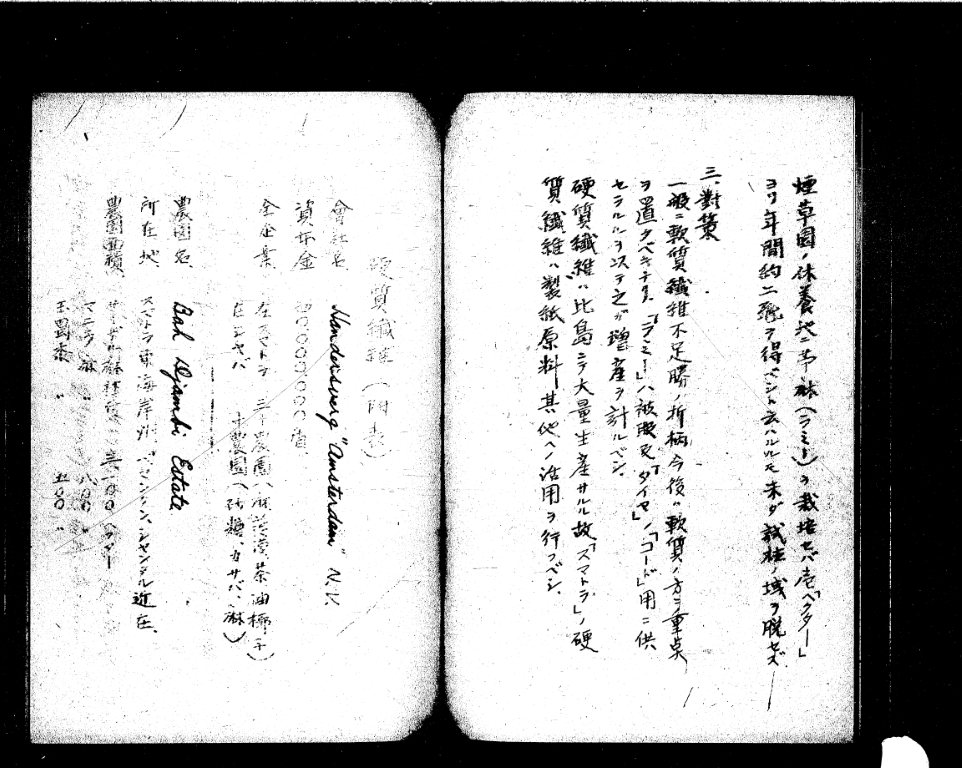 煙草園ノ休養地ニ苧麻(ラミー)ヲ栽培セバ壱「ヘクター」
ヨリ年間約二瓲ヲ得ベシト云ハルルモ未ダ試植ノ域ヲ脱セズ
三、對策
一般ニ軟質纖維不足勝ノ折柄今後ハ軟質ノ方ニ重点
ヲ置クベキナリ、「ラミー」ハ被服及「タイヤ」ノ「コード」用ニ供
セラルルヲ以テ之ガ増産ヲ計ルベシ
硬質纖維ハ比島ニテ大量生産サルル故「スマトラ」ノ硬
質纖維ハ製紙原料其ノ他ヘノ活用ヲ行フベシ
硬質纖維(附表)
會社名 Handelsverg "Amsterdam" N.V.
資本金 000000盾
全企業 在スマトラ 三十農園(麻、護謨、茶、油椰子)
在ジャバ 十農園(砂糖、カサバ、麻)
農園名 Bah Djambi Estate
所在地 スマトラ東海岸州、シャンタル近在
農園面積
マニラ麻 〃 八〇〇 〃
玉蜀黍 〃 五〇〇 〃